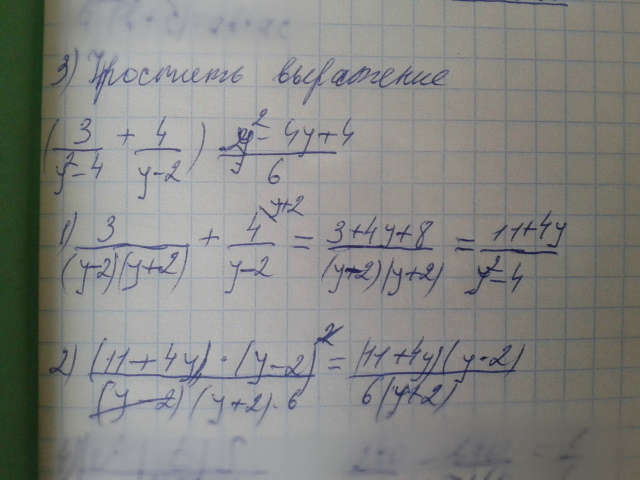 3) Упростить выражение
(3/(y²-4) + 4/(y-2)) (y²-4y+4)/6
1) 3/((y-2)(y+2)) + 4/(y-2) \y+2 = (3+4y+8)/((y-2)(y+2)) = (11+4y)/(y²-4)
2) ((11+4y)·(y-2)²)/((y-2)(y+2)·6) = ((11+4y)(y-2))/(6(y+2))